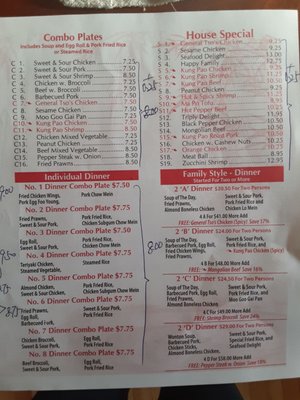 Combo Plates
Includes Soup and Egg Roll & Pork Fried Rice
or Steamed Rice
C 1. Sweet & Sour Chicken 7.25
C 2. Sweet & Sour Pork 7.25
C 3. Sweet & Sour Shrimp 8.50
C 4. Chicken w. Broccoli 7.25
C 5. Beef w. Broccoli 7.50
C 6. Barbecued Pork 7.50
C 7. General Tso's Chicken 7.50
C 8. Sesame Chicken 7.50
C 9. Moo Goo Gai Pan 7.25
C10. Kung Pao Chicken 7.50
C11. Kung Pao Shrimp 8.50
C12. Chicken Mixed Vegetable 7.25
C13. Peanut Chicken 7.25
C14. Beef Mixed Vegetable 7.50
C15. Pepper Steak w. Onion 7.50
C16. Fried Prawns 8.50
House Special
S 1. General Tso's Chicken 9.25
S 2. Sesame Chicken 9.25
S 3. Seafood Delight
S 4. Happy Family
S 5. Kung Pao Chicken
S 6. Kung Pao Shrimp
S 7. Kung Pao Beef
S 8. Peanut Chicken
S 9. Hot & Spicy Shrimp
S10. Ma Po Tofu
S11. Hot Pepper Beef
S12. Triply Delight
S13. Black Pepper Chicken
S14. Mongolian Beef
S15. Kung Pao Great Purk
S16. Chicken w. Cashew Nuts
S17. Orange Chicken
S18. Meat Ball
S19. Zucchini Shrimp
Individual Dinner
No. 1 Dinner Combo Plate $7.50
Fried Chicken Wings, Pork Chow Mein
Pork Egg Foo Young,
No. 2 Dinner Combo Plate $7.75
Fried Prawns, Pork Fried Rice,
Almond Chicken, Chicken Subgum Chow Mein
No. 3 Dinner Combo Plate $7.75
Egg Roll, Pork Fried Rice,
Sweet & Sour Pork, Chicken Chow Mein
No. 4 Dinner Combo Plate $7.75
Teriyaki Chicken, Steamed Rice,
Steamed Vegetable,
No. 5 Dinner Combo Plate $7.75
Almond Chicken, Pork Fried Rice,
Sweet & Sour Pork, Chicken Subgum Chow Mein
No. 6 Dinner Combo Plate $7.75
Fried Prawns, Pork Fried Rice,
Egg Roll,
Barbecued Pork,
No. 7 Dinner Combo Plate $7.75
Chicken Broccoli, Egg Roll,
Sweet & Sour Pork, Pork Fried Rice
No. 8 Dinner Combo Plate $7.75
Beef Broccoli, Egg Roll,
Sweet & Sour Pork, Pork Fried Rice
Family Style - Dinner
Started For Two or More
2 'A' Dinner $20.50 For Two Persons
Soup of The Day, Sweet & Sour Pork,
Fried Prawns, Pork Fried Rice, and
Almond Boneless Chicken
4 A For $41.00 More Add
FREE: General Tso's Chicken (Spicy) Save 17%
2 'B' Dinner
Soup of The Day, Sweet & Sour Pork,
Barbecued Pork, Egg Roll, Pork Fried Rice, and
Fried Prawns, Kung Pao Chicken (Spicy)
4 B For $48.00 More Add
FREE: Mongolian Beef Save 16%
2 'C' Dinner $24.50 For Two Persons
Soup of The Day, Sweet & Sour Pork,
Barbecued Pork, Pork Fried Rice, and
Egg Roll, Moo Goo Gai Pan
Fried Prawns,
4C For $49.00 More Add
2 'D' Dinner $29.00 For Two Persons
Wonton Soup, Sweet & Sour Pork,
Barbecued Pork, Egg Roll, Pork Fried Rice,
Chicken Sticks, Fried Prawns,
Almond Boneless Chicken,
4 D For $58.00 More Add
FREE: Pepper Steak w. Onion Save 18%